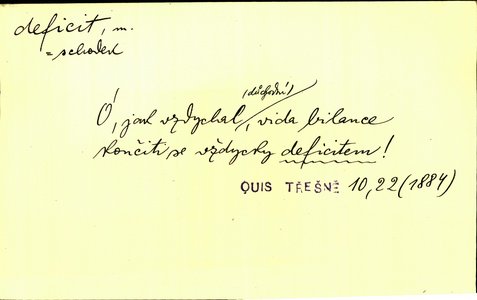 deficit, m.
= schodek
(důchodní)
Ó, jak vzdychal, vida bilance
končiti se vždycky deficitem!
QUIS TŘEŠNĚ 10,22 (1884)